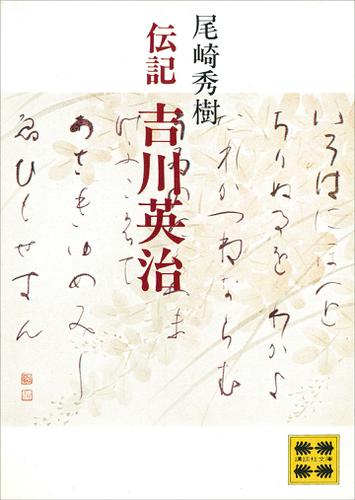 尾崎秀樹
伝記 吉川英治
いろはにほへと
ちりぬるをわかよ
たれかつねならむ
けふこえて
あさきゆめみし
ゑひもせすん
講談社文庫